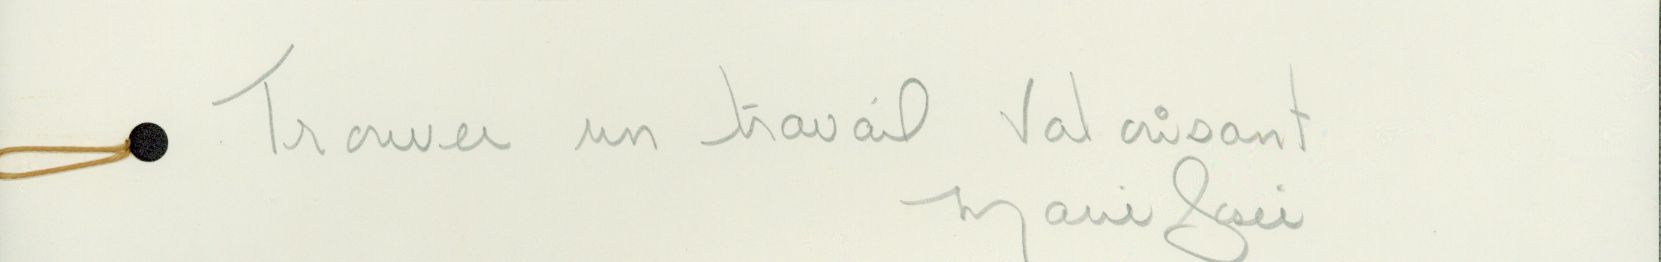 Trouver un travail valorisant
Marie Josée